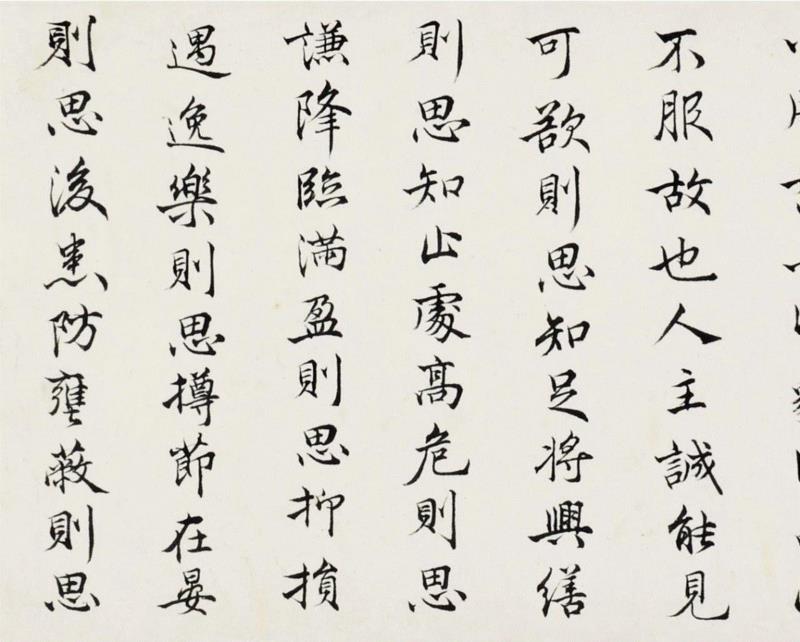 不服故也人主誠能見
可欲則思知足將興繕
則思知止處高危則思
謙降臨滿盈則思抑損
遇逸樂則思撙節在晏
則思後患防壅蔽則思